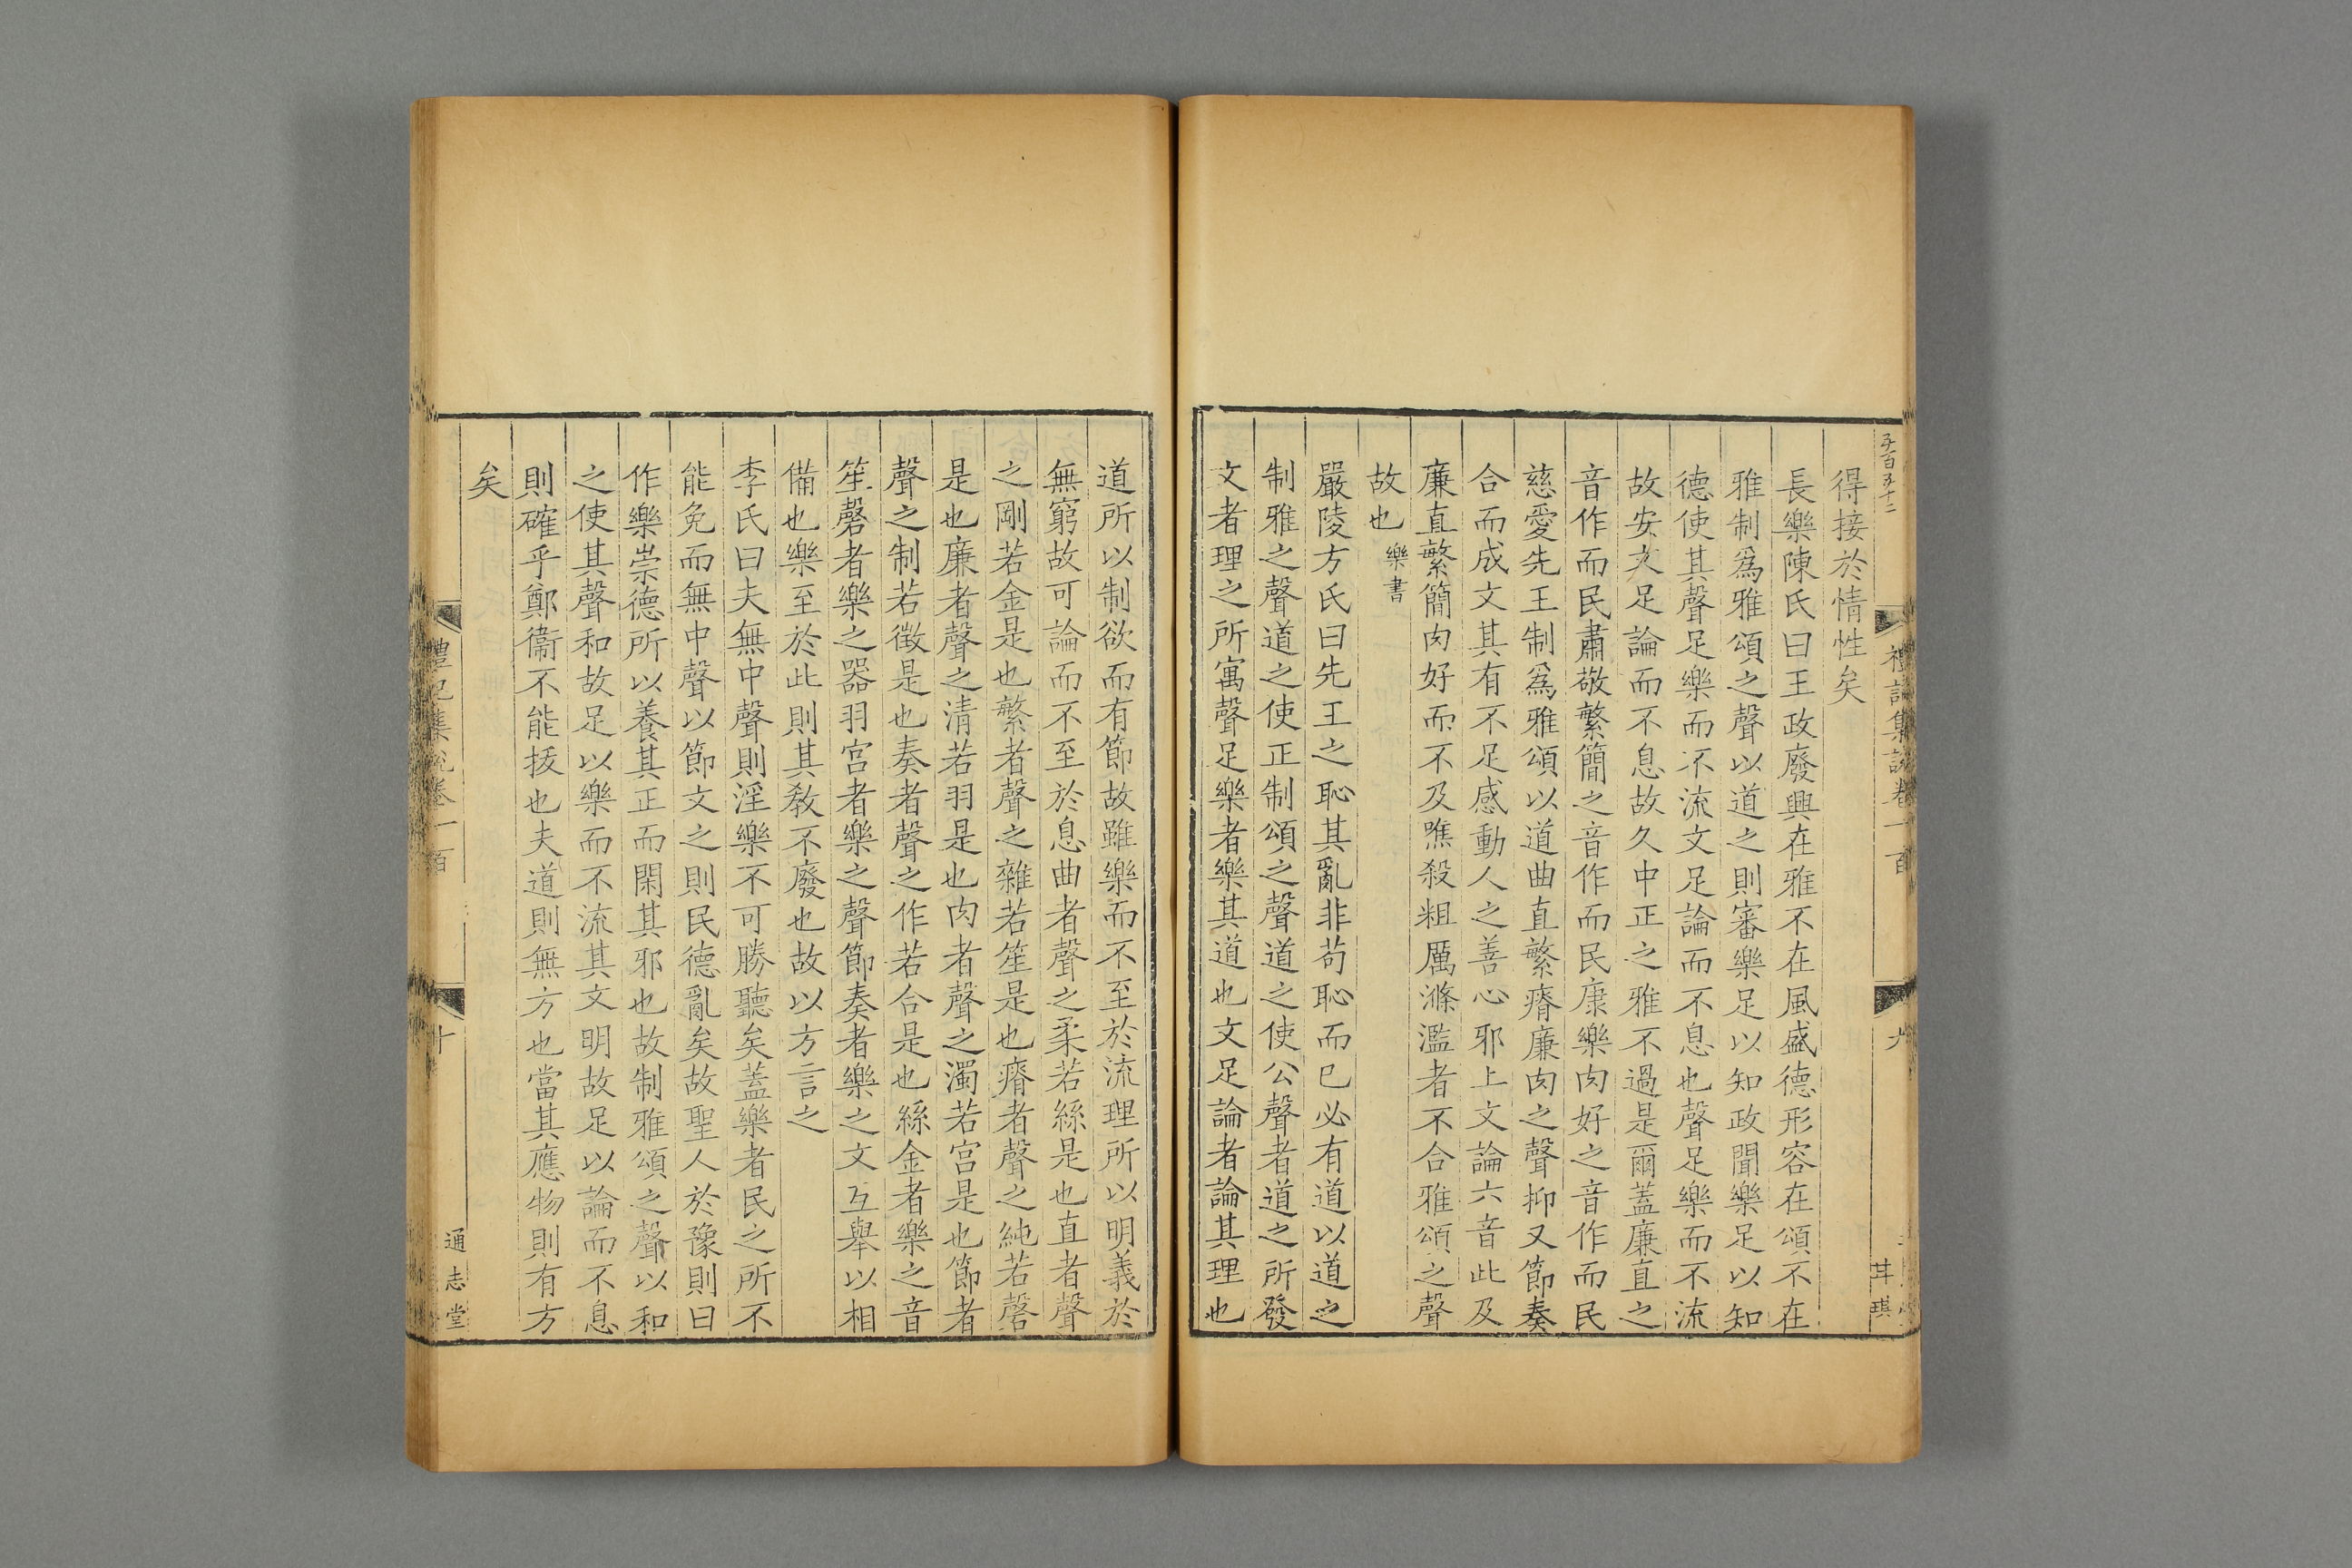 五百五十二
禮記集說卷一百
九
甘琪
得接於情性矣
長樂陳氏曰王政廢興在雅不在風盛德形容在頌不在
雅制爲雅頌之聲以道之則審樂足以知政聞樂足以知
德使其聲足樂而不流文足論而不息也聲足樂而不流
故安矣足論而不息故久中正之雅不過是爾蓋廉直之
音作而民肅敬繁簡之音作而民康樂肉好之音作而民
慈愛先王制爲雅頌以道曲直繁瘠廉肉之聲抑又節奏
合而成文其有不足感動人之善心邪上文論六音此及
廉直繁簡肉好而不及噍殺粗厲滌濫者不合雅頌之聲
故也樂書
嚴陵方氏曰先王之恥其亂非苟恥而已必有道以道之
制雅之聲道之使正制頌之聲道之使公聲者道之所發
文者理之所寓聲足樂者樂其道也文足論者論其理也
道所以制欲而有節故雖樂而不至於流理所以明義於
無窮故可論而不至於息曲者聲之柔若絲是也直者聲
之剛若金是也繁者聲之雜若笙是也瘠者聲之純若磬
是也廉者聲之清若羽是也肉者聲之濁若宮是也節者
聲之制若徵是也奏者聲之作若合是也絲金者樂之音
笙磬者樂之器羽宮者樂之聲節奏者樂之文互舉以相
備也樂至於此則其教不廢也故以方言之
李氏曰夫無中聲則淫樂不可勝聽矣蓋樂者民之所不
能免而無中聲以節文之則民德亂矣故聖人於豫則曰
作樂崇德所以養其正而閑其邪也故制雅頌之聲以和
之使其聲和故足以樂而不流其文明故足以論而不息
則確乎鄭衞不能拔也夫道則無方也當其應物則有方
矣
禮記集說卷一百
十
通志堂